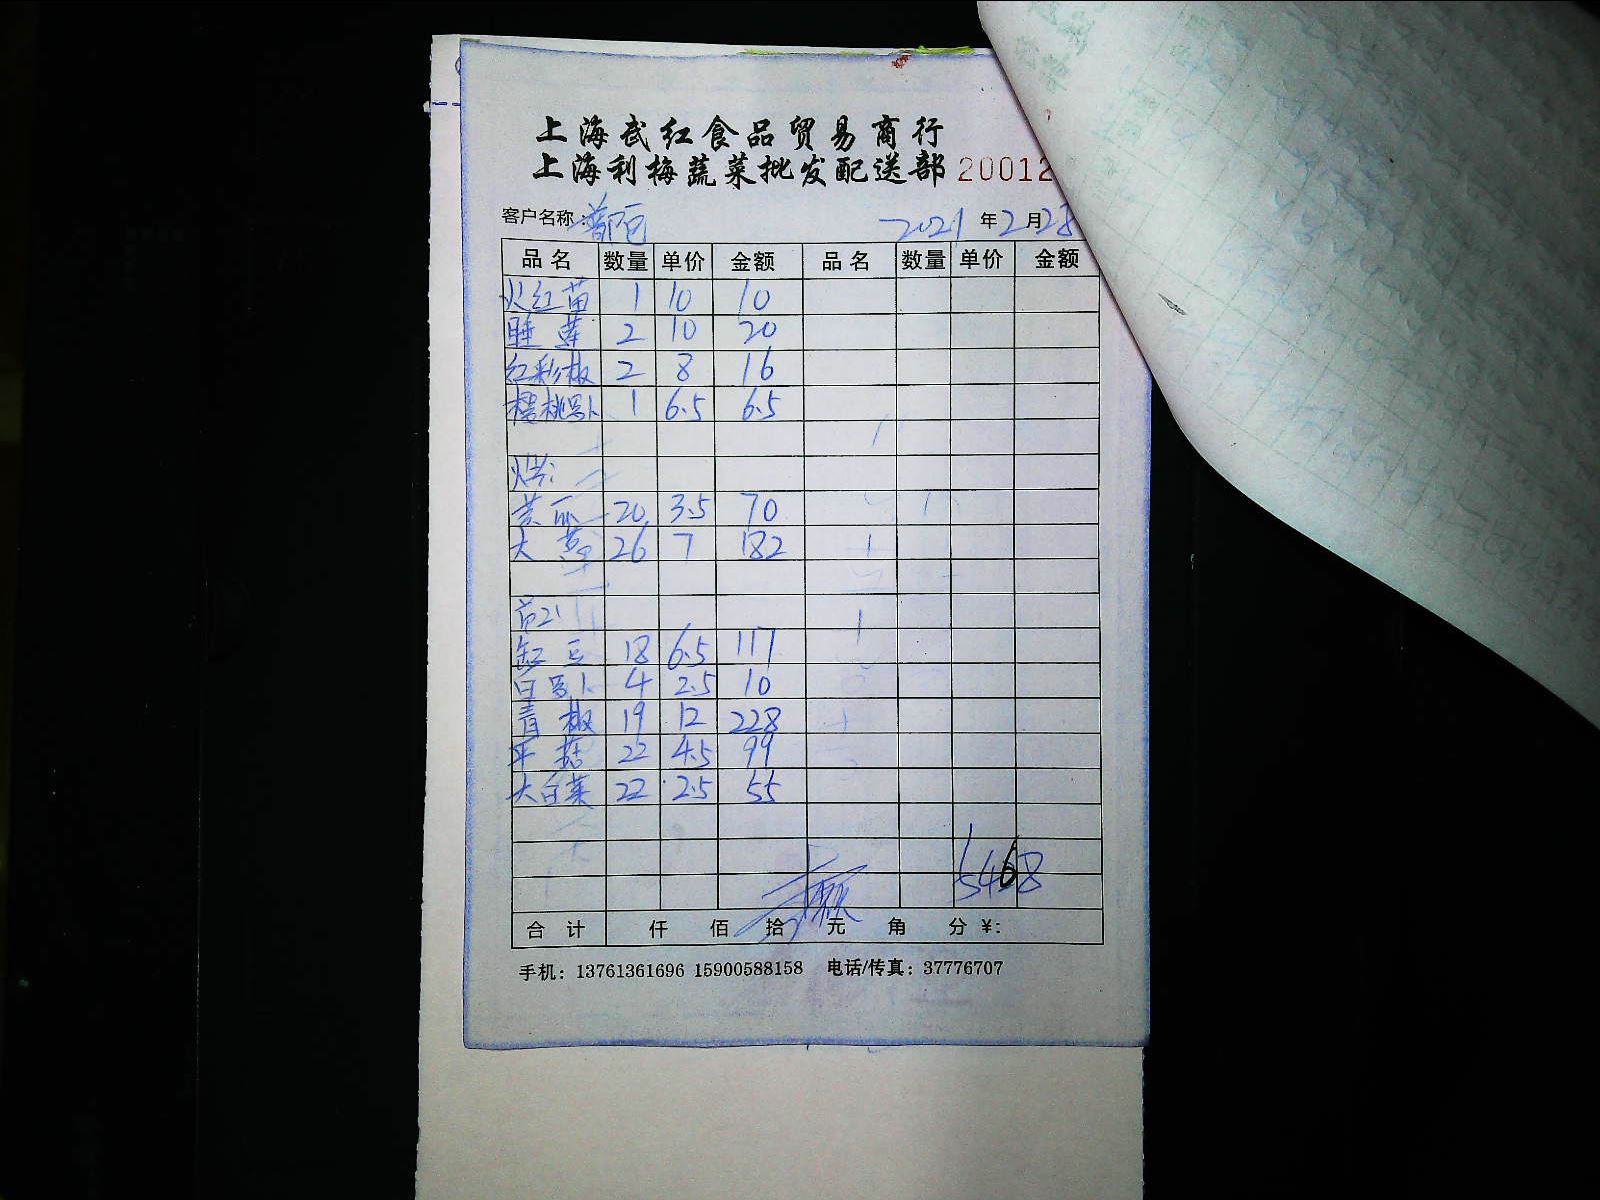 上海武红食品贸易商行
上海利梅蔬菜批发配送部 20012
客户名称: 2021年2月28
品名 数量 单价 金额 品名 数量 单价 金额
火红苗 1 10 10
睡莲 2 10 20
红彩椒 2 8 16
樱桃罗卜 1 6.5 6.5
20 3.5 70
大 26 7 182
缸豆 18 6.5 117
白罗卜 4 2.5 10
青椒 19 12 228
平菇 22 4.5 99
大白菜 22 2.5 55
5468
合计 仟 佰 拾 元 角 分 ¥:
手机: 13761361696 15900588158 电话/传真: 37776707